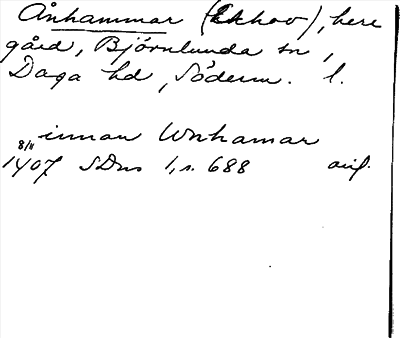 Ånhammar (Ekhov), here
gård, Björnlunda sn,
Daga hd, Söderm. l.
innan Wnhamar
8/11
1407 SDns 1, s. 688 avf.